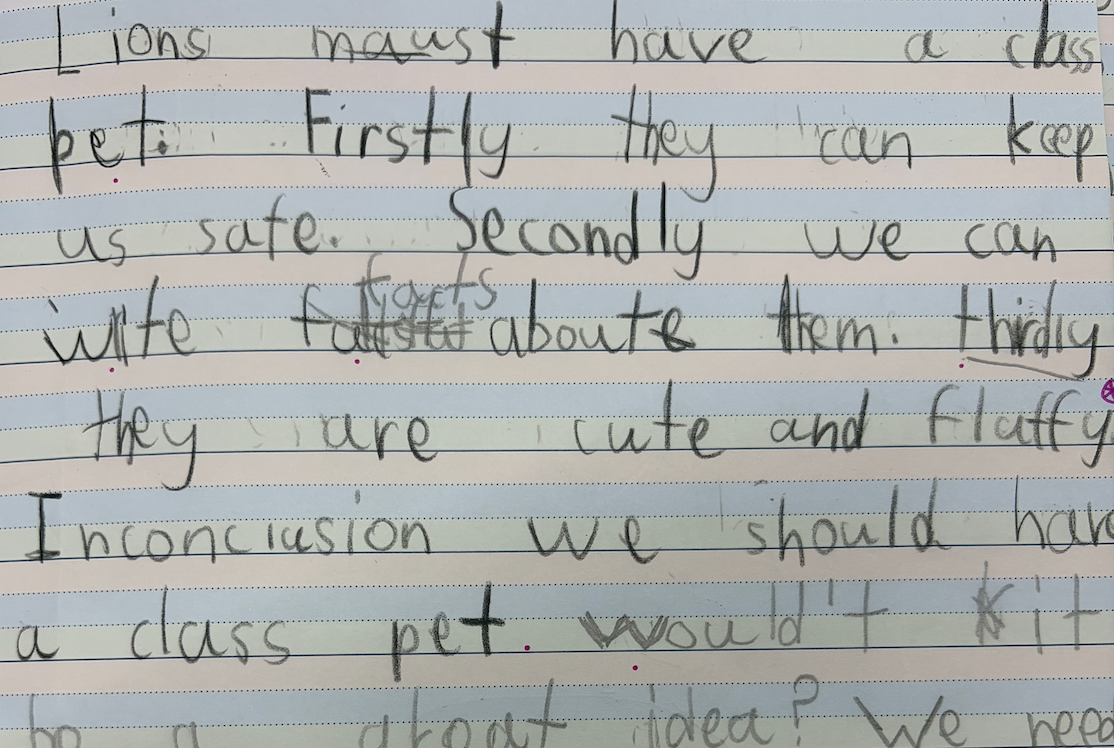 Lions must have a class
pet. Firstly they can keep
us safe. Secondly we can
write facts aboute them. thirdly
they are cute and fluffy
Inconclusion we should hav
a class pet. Wouldn't it
be a great idea? We need